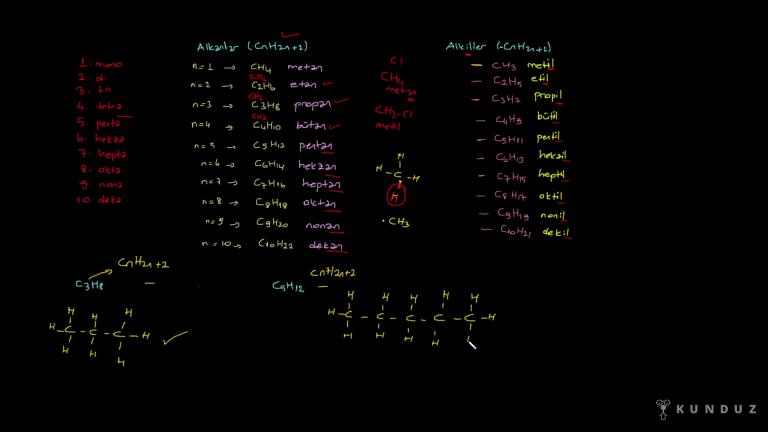 Alkanlar (CnH2n+2)
Alkiller (-CnH2n+1)
1. mono
2. di
3. tri
4. tetra
5. penta
6. hekza
7. hepta
8. okta
9. nona
10. deka
n=1 → CH4 metan
CH2
n=2 → C2H6 etan
CH2
n=3 → C3H8 propan
CH2
n=4 → C4H10 bütan
n=5 → C5H12 pentan
n=6 → C6H14 hekzan
n=7 → C7H16 heptan
n=8 → C8H18 oktan
n=9 → C9H20 nonan
n=10 → C10H22 dekan
Cl
CH4
metan
CH3-Cl
metil
H
H - C - H
H
• CH3
- CH3 metil
- C2H5 etil
- C3H7 propil
- C4H9 bütil
- C5H11 pentil
- C6H13 hekzil
- C7H15 heptil
- C8H17 oktil
- C9H19 nonil
- C10H21 dekil
CnH2n+2
C3H8
H H H
H - C - C - C - H
H H H
CnH2n+2
C5H12
H H H H H
H - C - C - C - C - C - H
H H H H
KUNDUZ